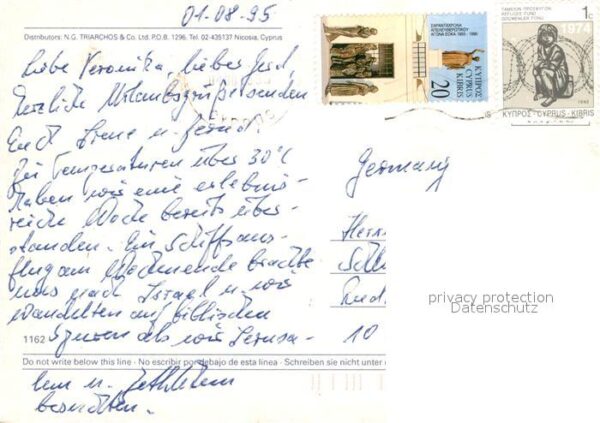 01-08-95
Distributors: N.G. TRIARCHOS & Co. Ltd. P.O.B. 1296, Tel. 02-435137 Nicosia, Cyprus
Liebe Veronika, lieber Gerd,
herzliche Urlaubsgrüße senden
Euch Irene u. Gerd.
Bei Temperaturen über 30°C
haben wir eine erlebnis-
reiche Woche bereits über-
standen. Ein Schiffsaus-
flug am Wochenende brachte
uns nach Israel u. wir
wandelten auf biblischen
Spuren als wir Jerusa-
1162
Do not write below this line - No escribir por debajo de esta linea - Schreiben sie nicht unter
lem u. Bethlehem
besuchten.
ΣΑΡΑΝΤΑΧΡΟΝΑ
ΑΠΕΛΕΥΘΕΡΩΤΙΚΟΥ
ΑΓΩΝΑ ΕΟΚΑ 1955 - 1995
ΚΥΠΡΟΣ
CYPRUS
KIBRIS
20
1c
REFUGEE FUND
GÖÇMENLER FONU
1974
ΚΥΠΡΟΣ - CYPRUS - KIBRIS
Germany
Herrn
10
privacy protection
Datenschutz